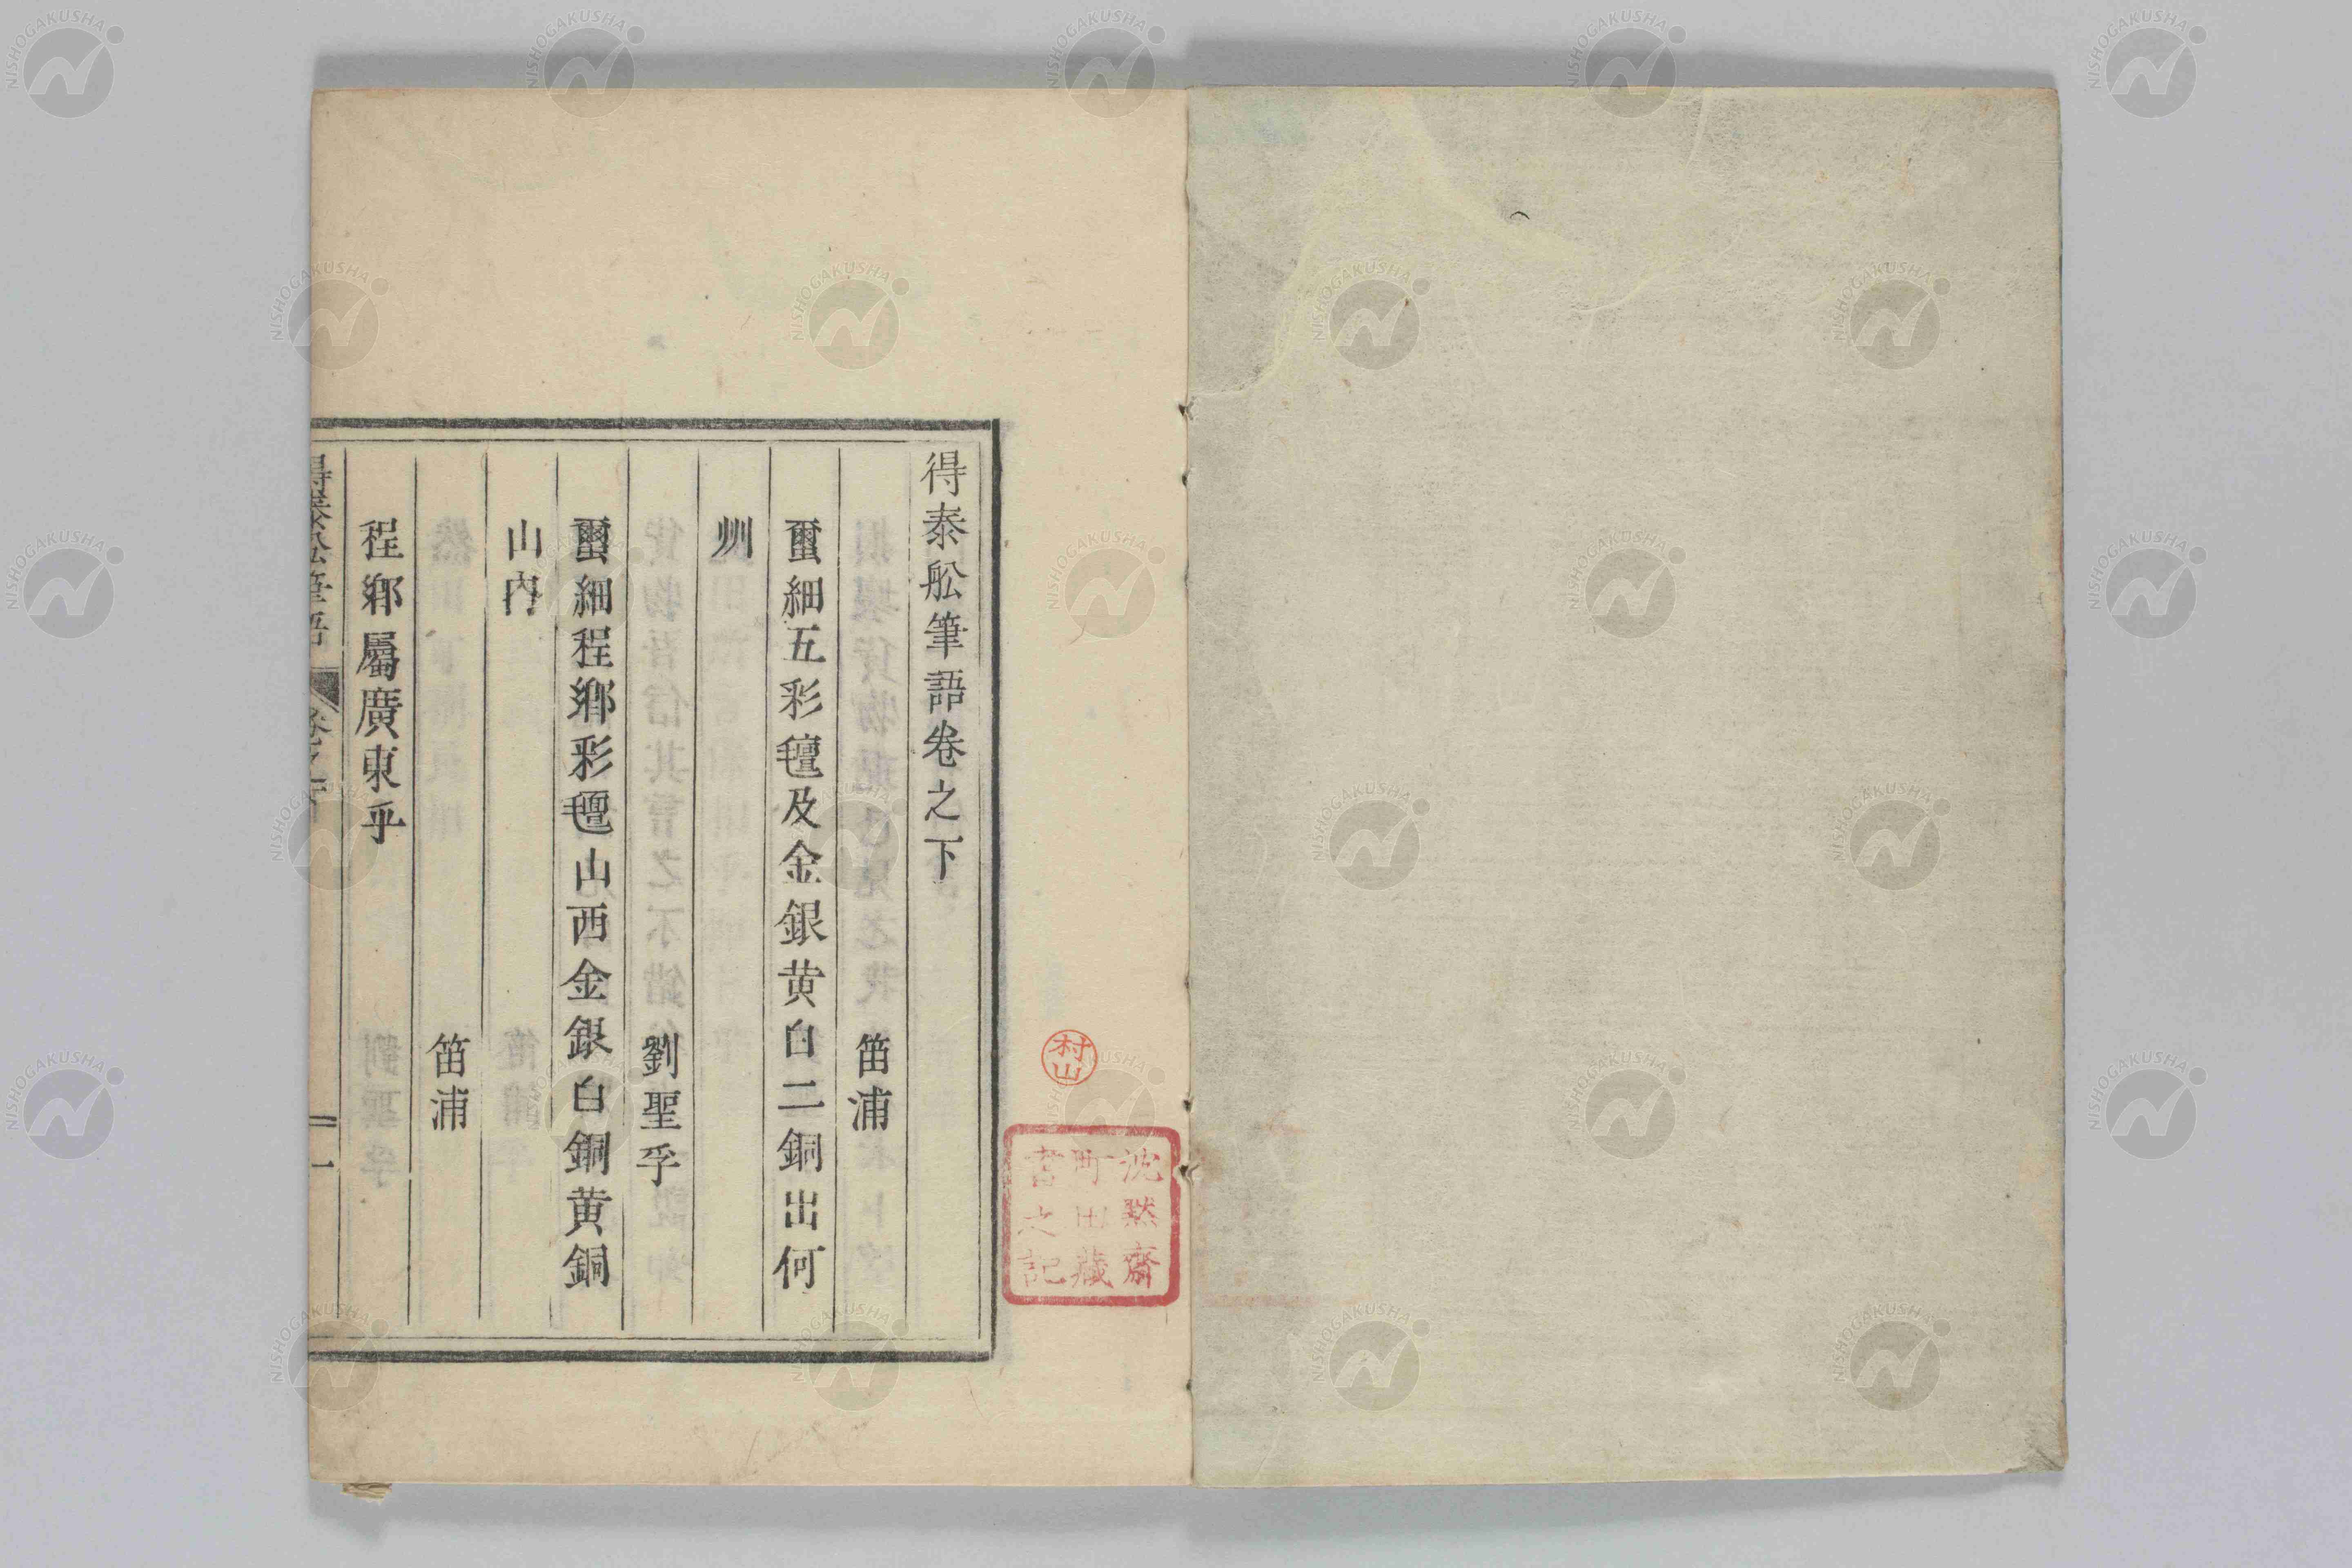 得泰舩筆語卷之下
笛浦
爾細五彩氊及金銀黄白二銅出何
州
劉聖孚
爾細程鄉彩氊山西金銀白銅黄銅
山內
笛浦
程鄉屬廣東乎
得泰舩筆語
卷之下
一
村山
沈黙齋
町田藏
書之記
NISHOGAKUSHA